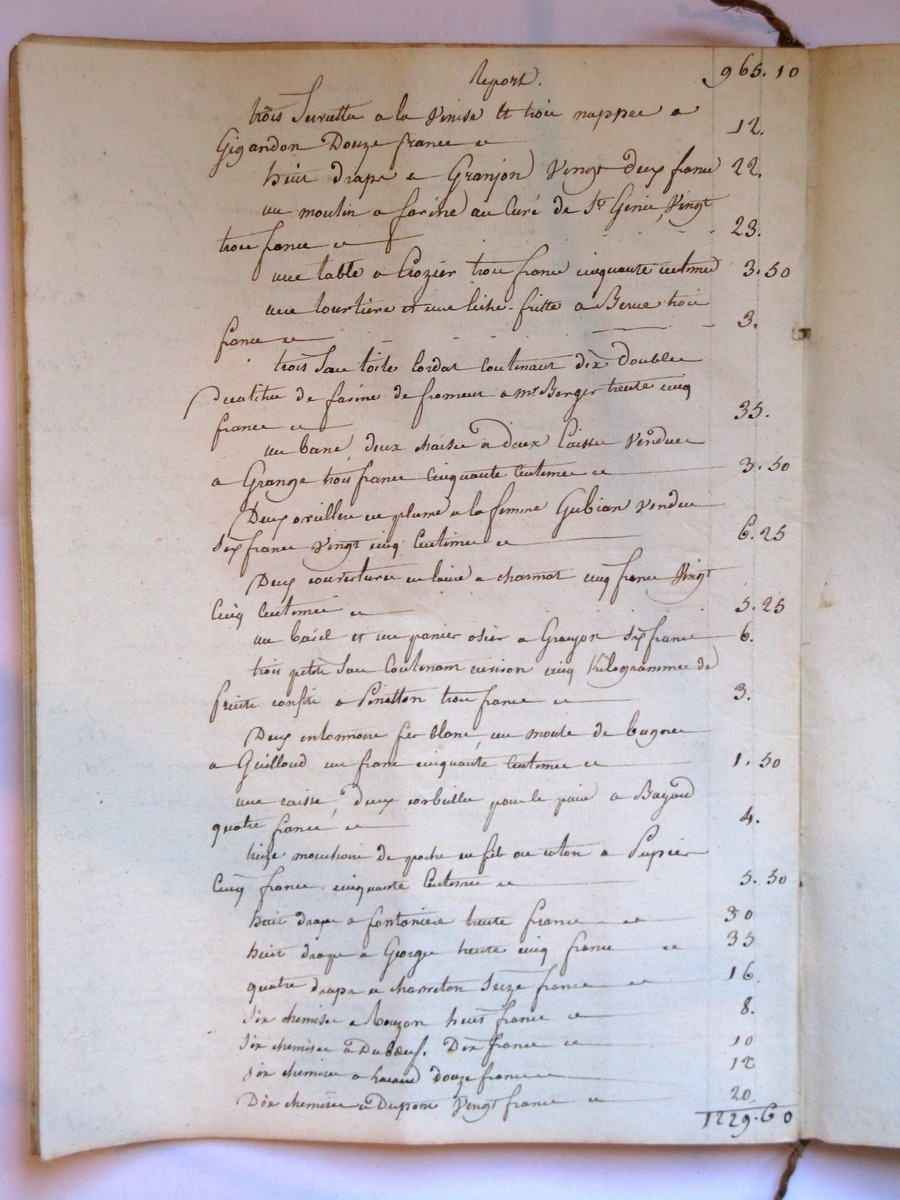 Report. 965.10
trois Serviettes a la Venise et trois nappes a
Gigandon Douze francs 12.
huit draps a Granjon Vingt deux francs 22.
un moulin a farine au Curé de St Genis Vingt
trois francs 23.
une table a Crozier trois francs cinquante centimes 3.50
une tourtiere et une leche-fritte a Berne trois
francs 3.
trois Sacs toile Cordat contenant dix doubles
de farine de froment a mr Berger trente cinq
francs 35.
un banc, deux chaises a deux Caisses Vendues
a Grange trois francs Cinquante Centimes 3.50
Deux oreillers en plume a la femme Gubian Vendus
Six francs Vingt cinq Centimes 6.25
Deux couvertures en laine a charmat cinq francs Vingt
Cinq Centimes 5.25
un baril et un panier osier a Granjon Six francs 6.
trois petits Sacs Contenant environ cinq Kilogrammes de
fruits confits a Pinatton trois francs 3.
Deux entonnoirs fer blanc, un moule de bugnes
a Guilloud un franc cinquante Centimes 1.50
une caisse, deux corbeilles pour le pain a Bayard
quatre francs 4.
treize mouchoirs de poche en fil ou coton a Pupier
Cinq francs cinquante Centimes 5.50
huit draps a fontaniere trente francs 30
huit draps a George trente cinq francs 35
quatre draps a charreton Seize francs 16
Six chemises a Rouzon huit francs 8.
Six chemises a Dubœuf. Dix francs 10
Six chemises a douze francs 12
Dix chemises a Dupont Vingt francs 20
1229.60